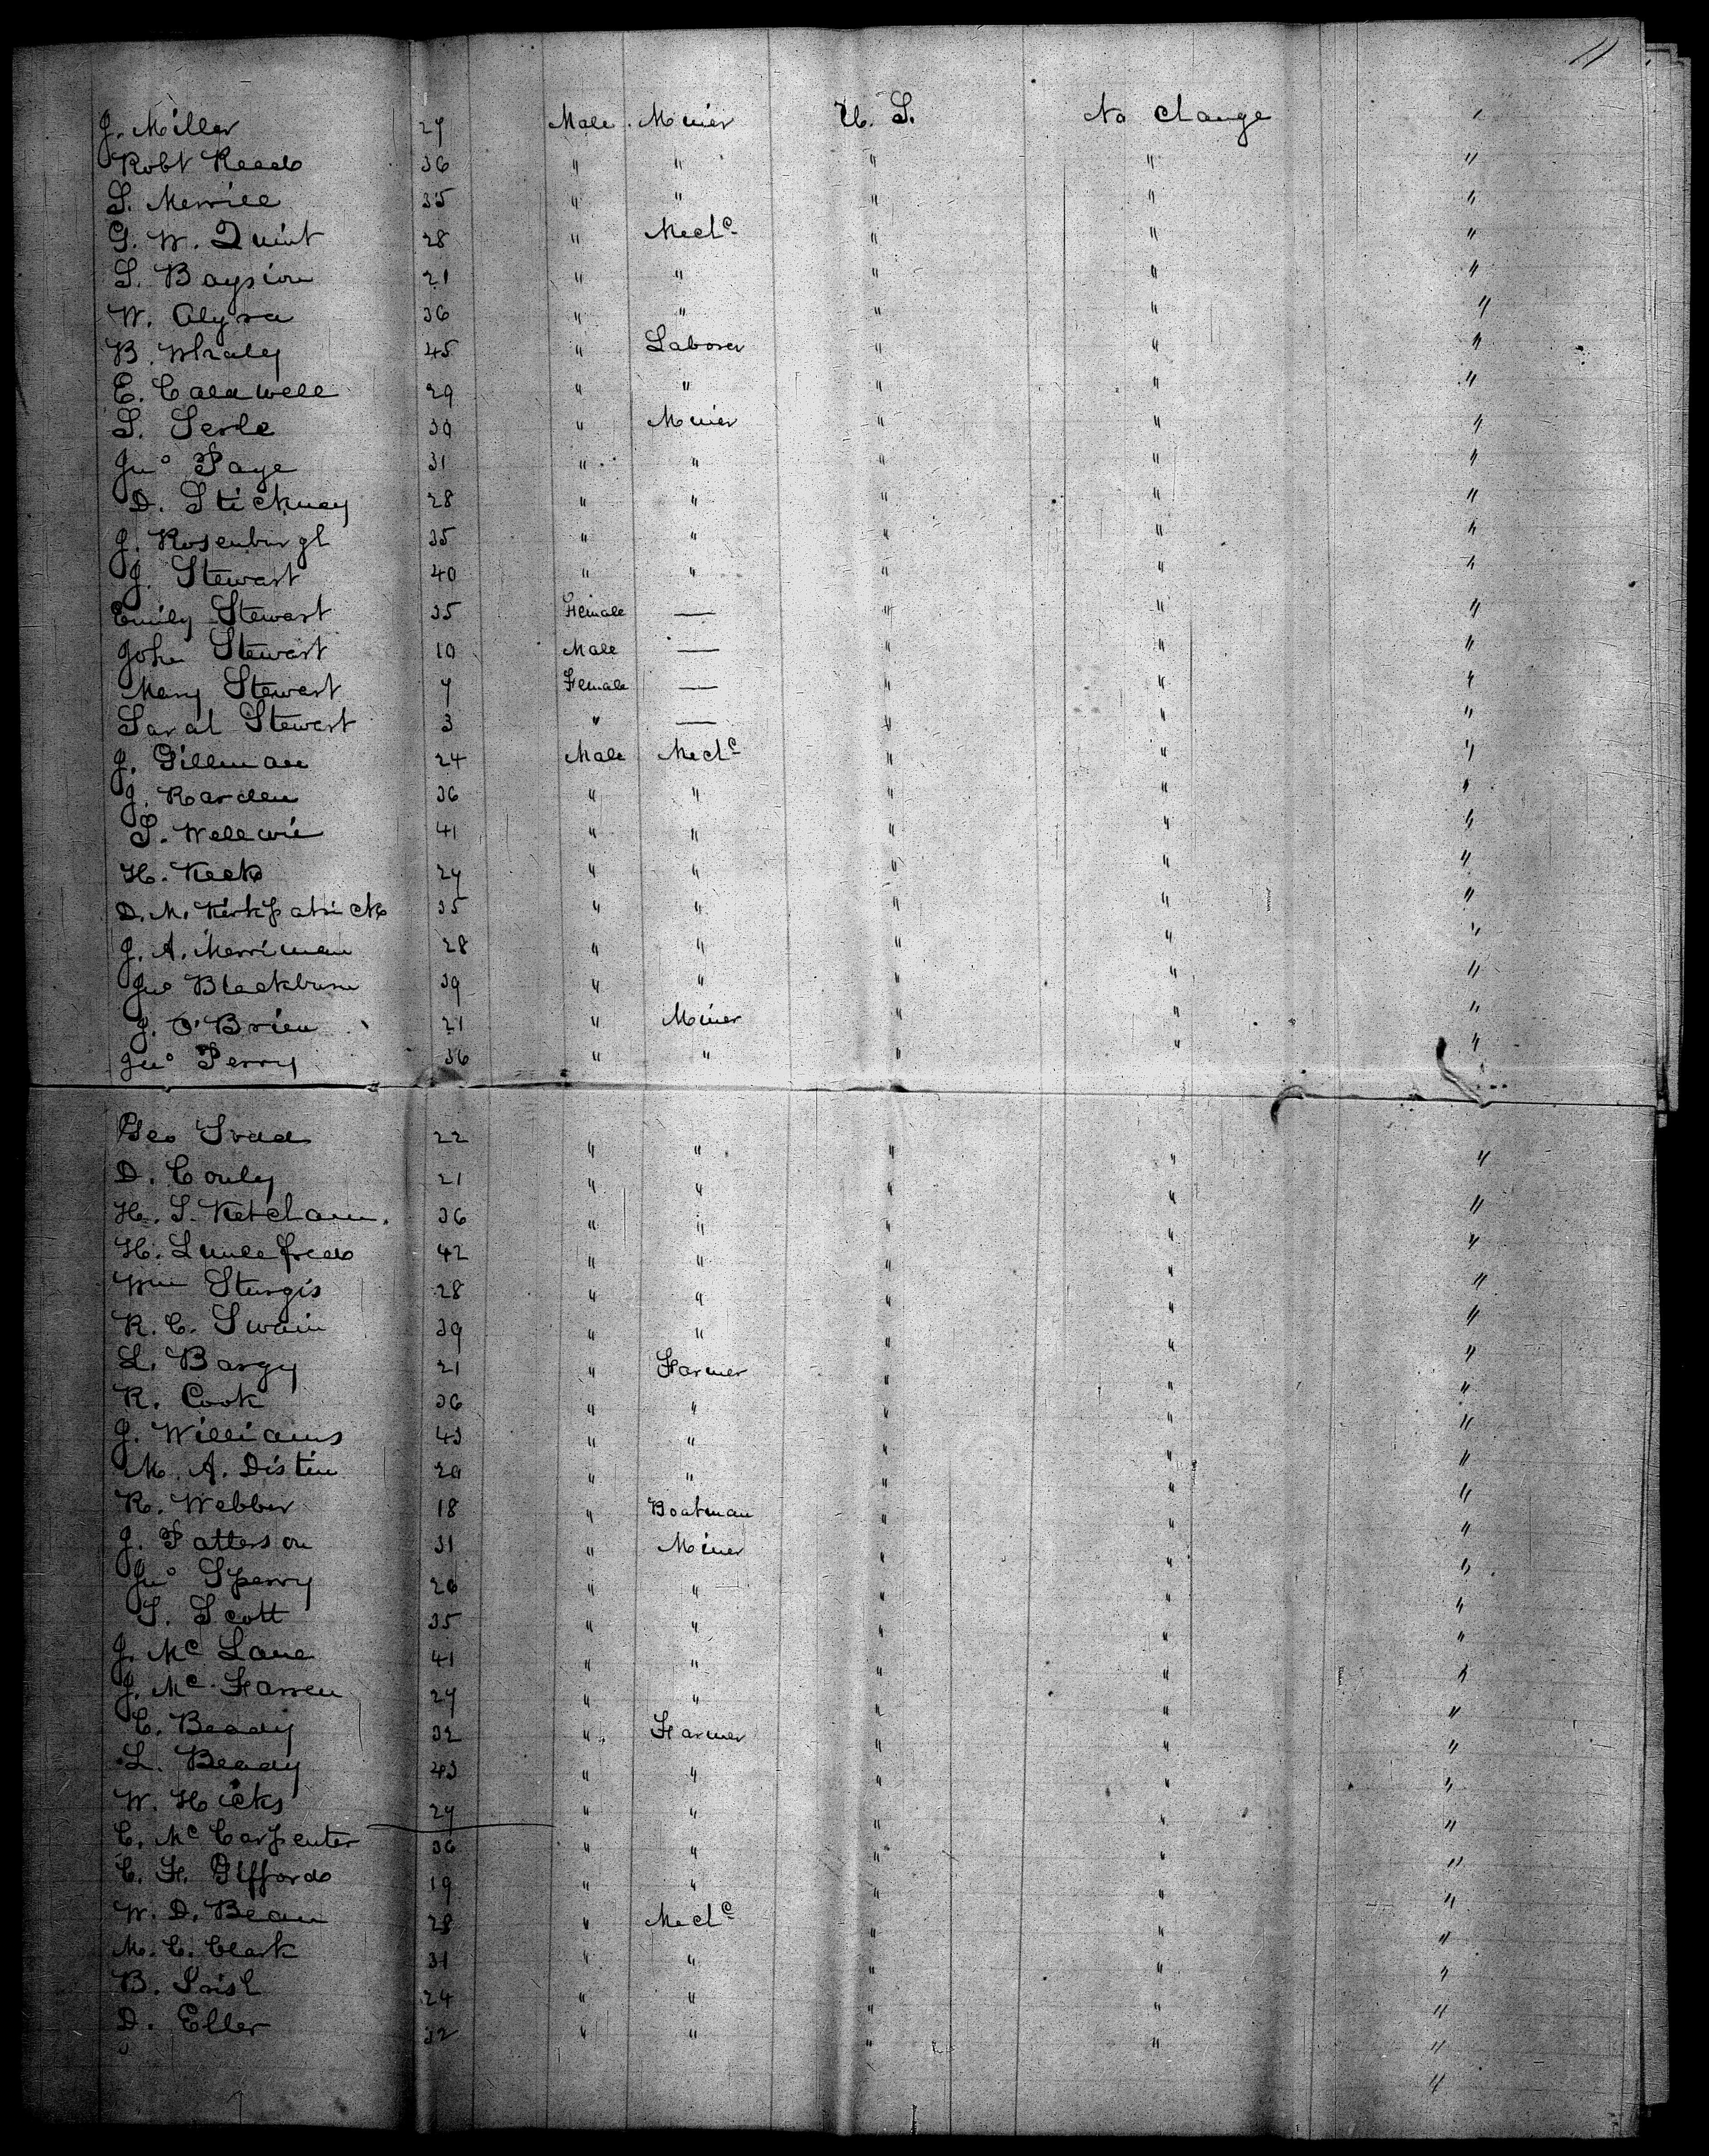 11
J. Miller 27 Male Miner U. S. No Change "
Robt Reed 36 " " " " "
S. Merrill 35 " " " " "
G. W. Quint 28 " Mechc " " "
S. 21 " " " " "
W. 36 " " " " "
B. Whaley 45 " Laborer " " "
E. Caldwell 29 " " " " "
S. 30 " Miner " " "
Jno Page 31 " " " " "
D. Stickney 28 " " " " "
J. Rosenburgh 35 " " " " "
J. Stewart 40 " " " " "
Emily Stewart 35 Female — " " "
John Stewart 10 Male — " " "
Mary Stewart 7 Female — " " "
Sarah Stewart 3 " — " " "
J. Gillman 24 Male Mechc " " "
J. Rarden 36 " " " " "
S. 41 " " " " "
H. Keck 27 " " " " "
D. M. Kirkpatrick 35 " " " " "
J. A. Merriman 28 " " " " "
Jno Blackburn 39 " " " " "
J. O'Brien 21 " Miner " " "
Jno Perry 36 " " " " "
Geo 22 " " " " "
D. Conly 21 " " " " "
H. S. Ketcham. 36 " " " " "
H. 42 " " " " "
Wm Sturgis 28 " " " " "
R. C. Swain 39 " " " " "
L. Bargy 21 " Farmer " " "
R. Cook 36 " " " " "
J. Williams 43 " " " " "
M. A. Distin 29 " " " " "
R. Webber 18 " Boatman " " "
J. Patterson 31 " Miner " " "
Jno Sperry 26 " " " " "
S. Scott 35 " " " " "
J. Mc Lane 41 " " " " "
J. Mc Farren 27 " " " " "
C. Beady 32 " Farmer " " "
L. Beady 43 " " " " "
W. Hicks 27 " " " " "
C. Mc Carpenter 36 " " " " "
C. F. Gifford 19 " " " " "
W. D. Bean 28 " Mechc " " "
M. C. Clark 31 " " " " "
B. Irish 24 " " " " "
D. Eller 32 " " " " "
"